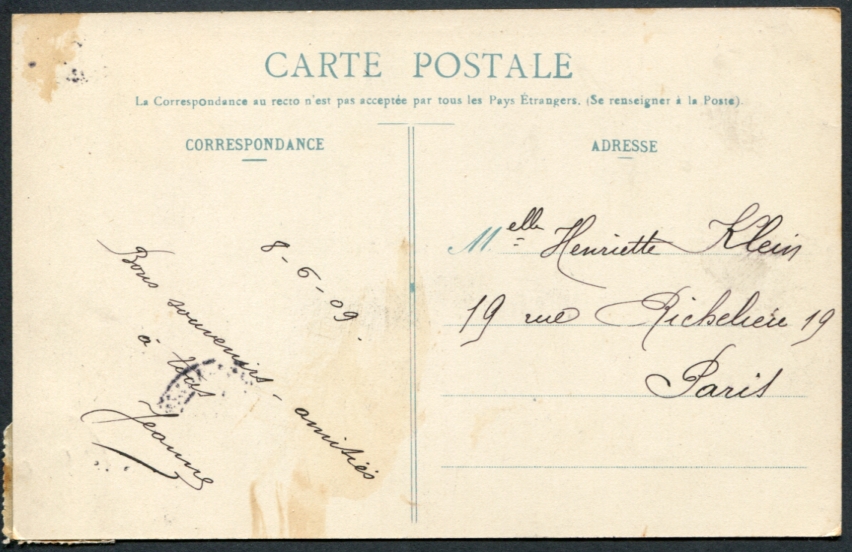 CARTE POSTALE
La Correspondance au recto n'est pas acceptée par tous les Pays Étrangers. (Se renseigner à la Poste).
CORRESPONDANCE
8-6-09.
Bons souvenirs - amitiés
à tous
Jeanne
ADRESSE
Melle Henriette Klein
19 rue Richelieu 19
Paris